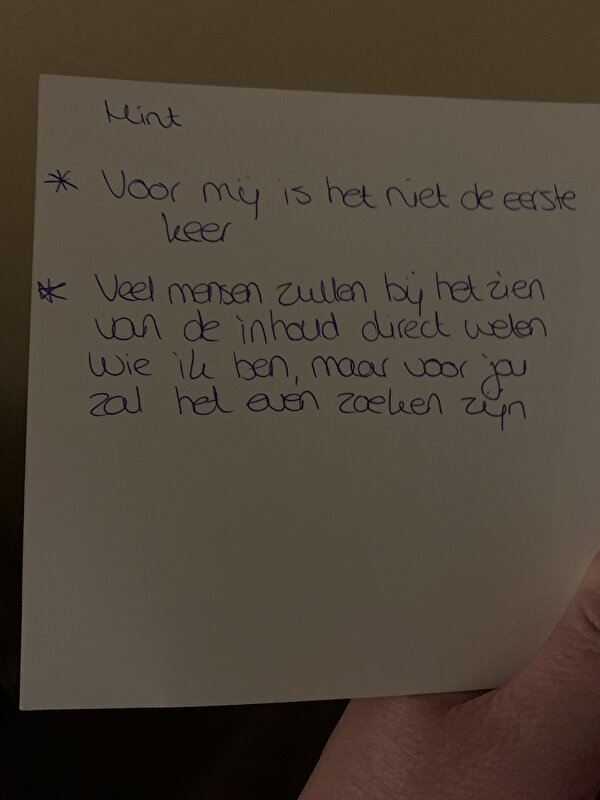 Hint
* Voor mij is het niet de eerste
keer
* Veel mensen zullen bij het zien
van de inhoud direct weten
wie ik ben, maar voor jou
zal het even zoeken zijn